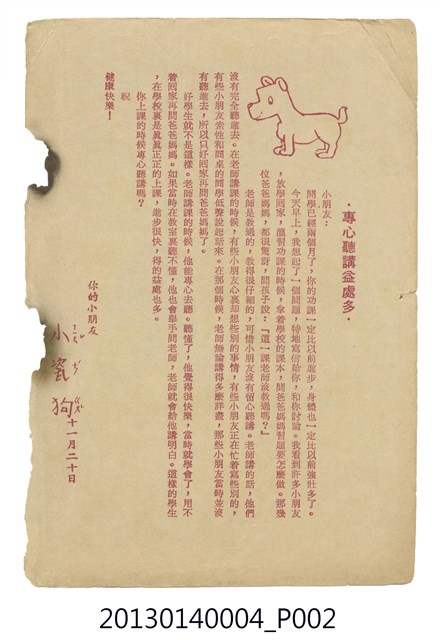 ・專心聽講益處多・
小朋友：
開學已經兩個月了，你的功課一定比以前進步，身體也一定比以前強壯多了。
今天早上，我想起了一個問題，特地寫信給你，和你討論。我看到許多小朋友
，放學回家，溫習功課的時候，拿着學校的課本，問爸爸媽媽習題要怎麼做。那幾
位爸爸媽媽，都很驚奇，問孩子說：「這一課老師沒教過嗎？」
老師是教過的，教得很仔細的，可惜小朋友沒有留心聽講。老師講的話，他們
沒有完全聽進去。在老師講課的時候，有些小朋友心裏却想些別的事情，有些小朋友正在忙着寫些別的，
有些小朋友索性和同桌的同學低聲說起話來。在那個時候，老師無論講得多麼詳盡，那些小朋友當時並沒
有聽進去，所以只好回家再問爸爸媽媽了。
好學生就不是這樣。老師講課的時候，他能專心去聽。聽懂了，他覺得很快樂，當時就學會了，用不
着回家再問爸爸媽媽。如果當時在教室裏聽不懂，他也會舉手問老師，老師就會給他講明白。這樣的學生
，在學校裏是眞眞正正的上課，進步很快，得的益處也多。
你上課的時候專心聽講嗎？
祝
健康快樂！
你的小朋友
小瓷狗
十一月二十日
20130140004_P002